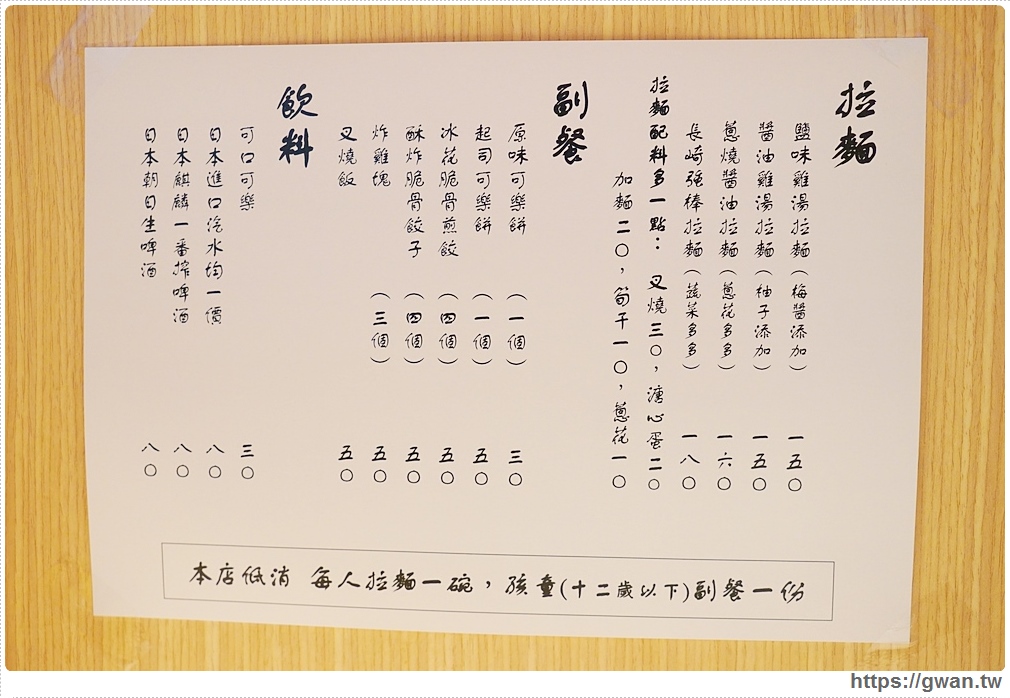 拉麵
鹽味雞湯拉麵(梅醬添加) 一五〇
醬油雞湯拉麵(柚子添加) 一五〇
蔥燒醬油拉麵(蔥花多多) 一六〇
長崎強棒拉麵(蔬菜多多) 一八〇
拉麵配料多一點： 叉燒三〇，溏心蛋二〇
加麵二〇，筍干一〇，蔥花一〇
副餐
原味可樂餅 (一個) 三〇
起司可樂餅 (一個) 五〇
冰花脆骨煎餃 (四個) 五〇
酥炸脆骨餃子 (四個) 五〇
炸雞塊 (三個) 五〇
叉燒飯 五〇
飲料
可口可樂 三〇
日本進口汽水均一價 八〇
日本麒麟一番搾啤酒 八〇
日本朝日生啤酒 八〇
本店低消 每人拉麵一碗，孩童(十二歲以下)副餐一份
https://gwan.tw